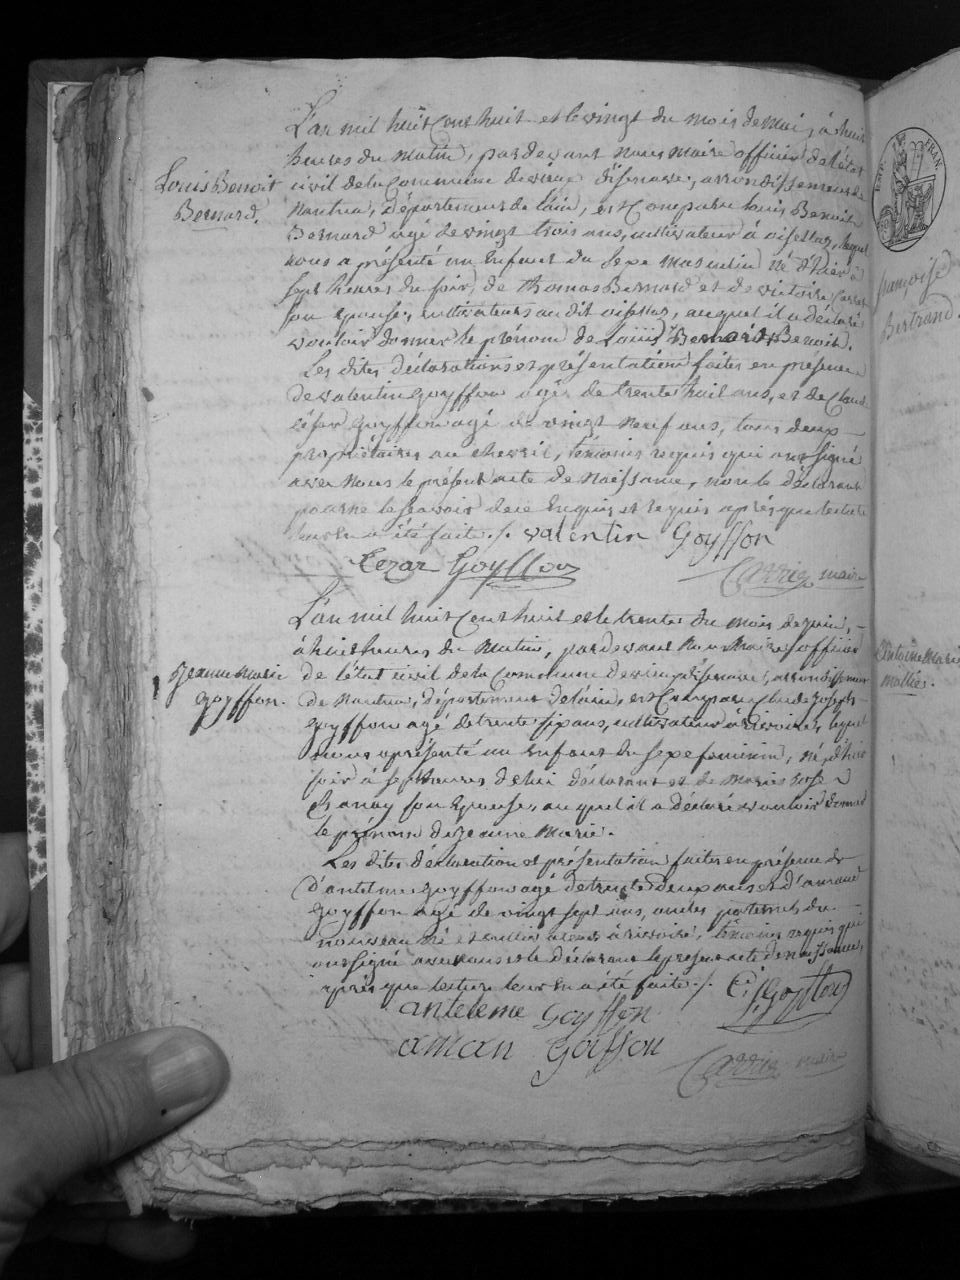 Louis Benoit
Bernard.
L'an mil huit Cent huit et le vingt du mois de mai, à huit
heures du matin, pardevant nous maire officier de l'état
civil de la Commune de arrondissement de
Nantua, département de l'ain, est Comparu Louis Benoit
Bernard agé de vingt trois ans, cultivateur à oisellaz, lequel
nous a présenté un Enfant du Sexe masculin né d'hier à
sept heures du soir, de thomas Bernard et de victoire
son Epouse, cultivateurs au dit oisellaz, auquel il a déclaré
vouloir donner le prénom de Louis Benoit.
Les dites déclarations et présentation faites en présence
de valentin Goyffon agé de trente huit ans, et de Claude
César Goyffon agé de vingt neuf ans, tous deux
propriétaires au chevril, témoins requis qui ont signé
avec nous le présent acte de Naissance, non le déclarant
pour ne le sçavoir de ce Enquis et requis après que lecture
leur en a été faite ./. valentin Goyffon
Cezar Goyffon
maire
Jeanne Marie
goyffon.
L'an mil huit Cent huit et le trente du mois de juin,
à huit heures du Matin, pardevant Nous Maire officier
de l'état civil de la Commune de arrondissement
de Nantua, département de l'ain, est Comparu Claude Joseph
Goyffon agé de trente six ans, cultivateur à lequel
nous a présenté un Enfant du Sexe feminin, né d'hier
soir à sept heures, de lui déclarant et de Marie Rose
Chanay son Epouse, auquel il a déclaré vouloir donner
le prénom de Jeanne Marie.
Les dites déclaration et présentation faites en présence de
d'antelme Goyffon agé de trente deux ans et d'amand
Goyffon agé de vingt sept ans, oncles paternels du
nouveau né et cultivateurs à témoins requis qui
ont signé avec nous et le déclarant le présent acte de naissance,
après que lecture leur en a été faite ./. C. j. Goyffon
anteleme Goyffon
aman Goiffon
maire
EMP. FRAN.
françoise
Bertrand.
Antoine Marie
mathieu.